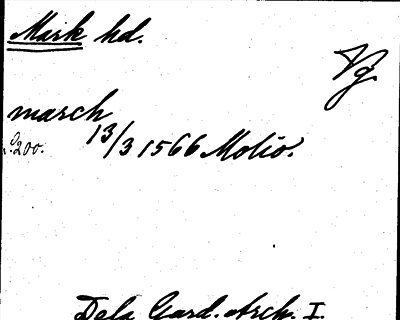 Mark hd.
Vg.
march
13/3 1566 Molio.
s. 200.
Dela Gard. Arch. I.